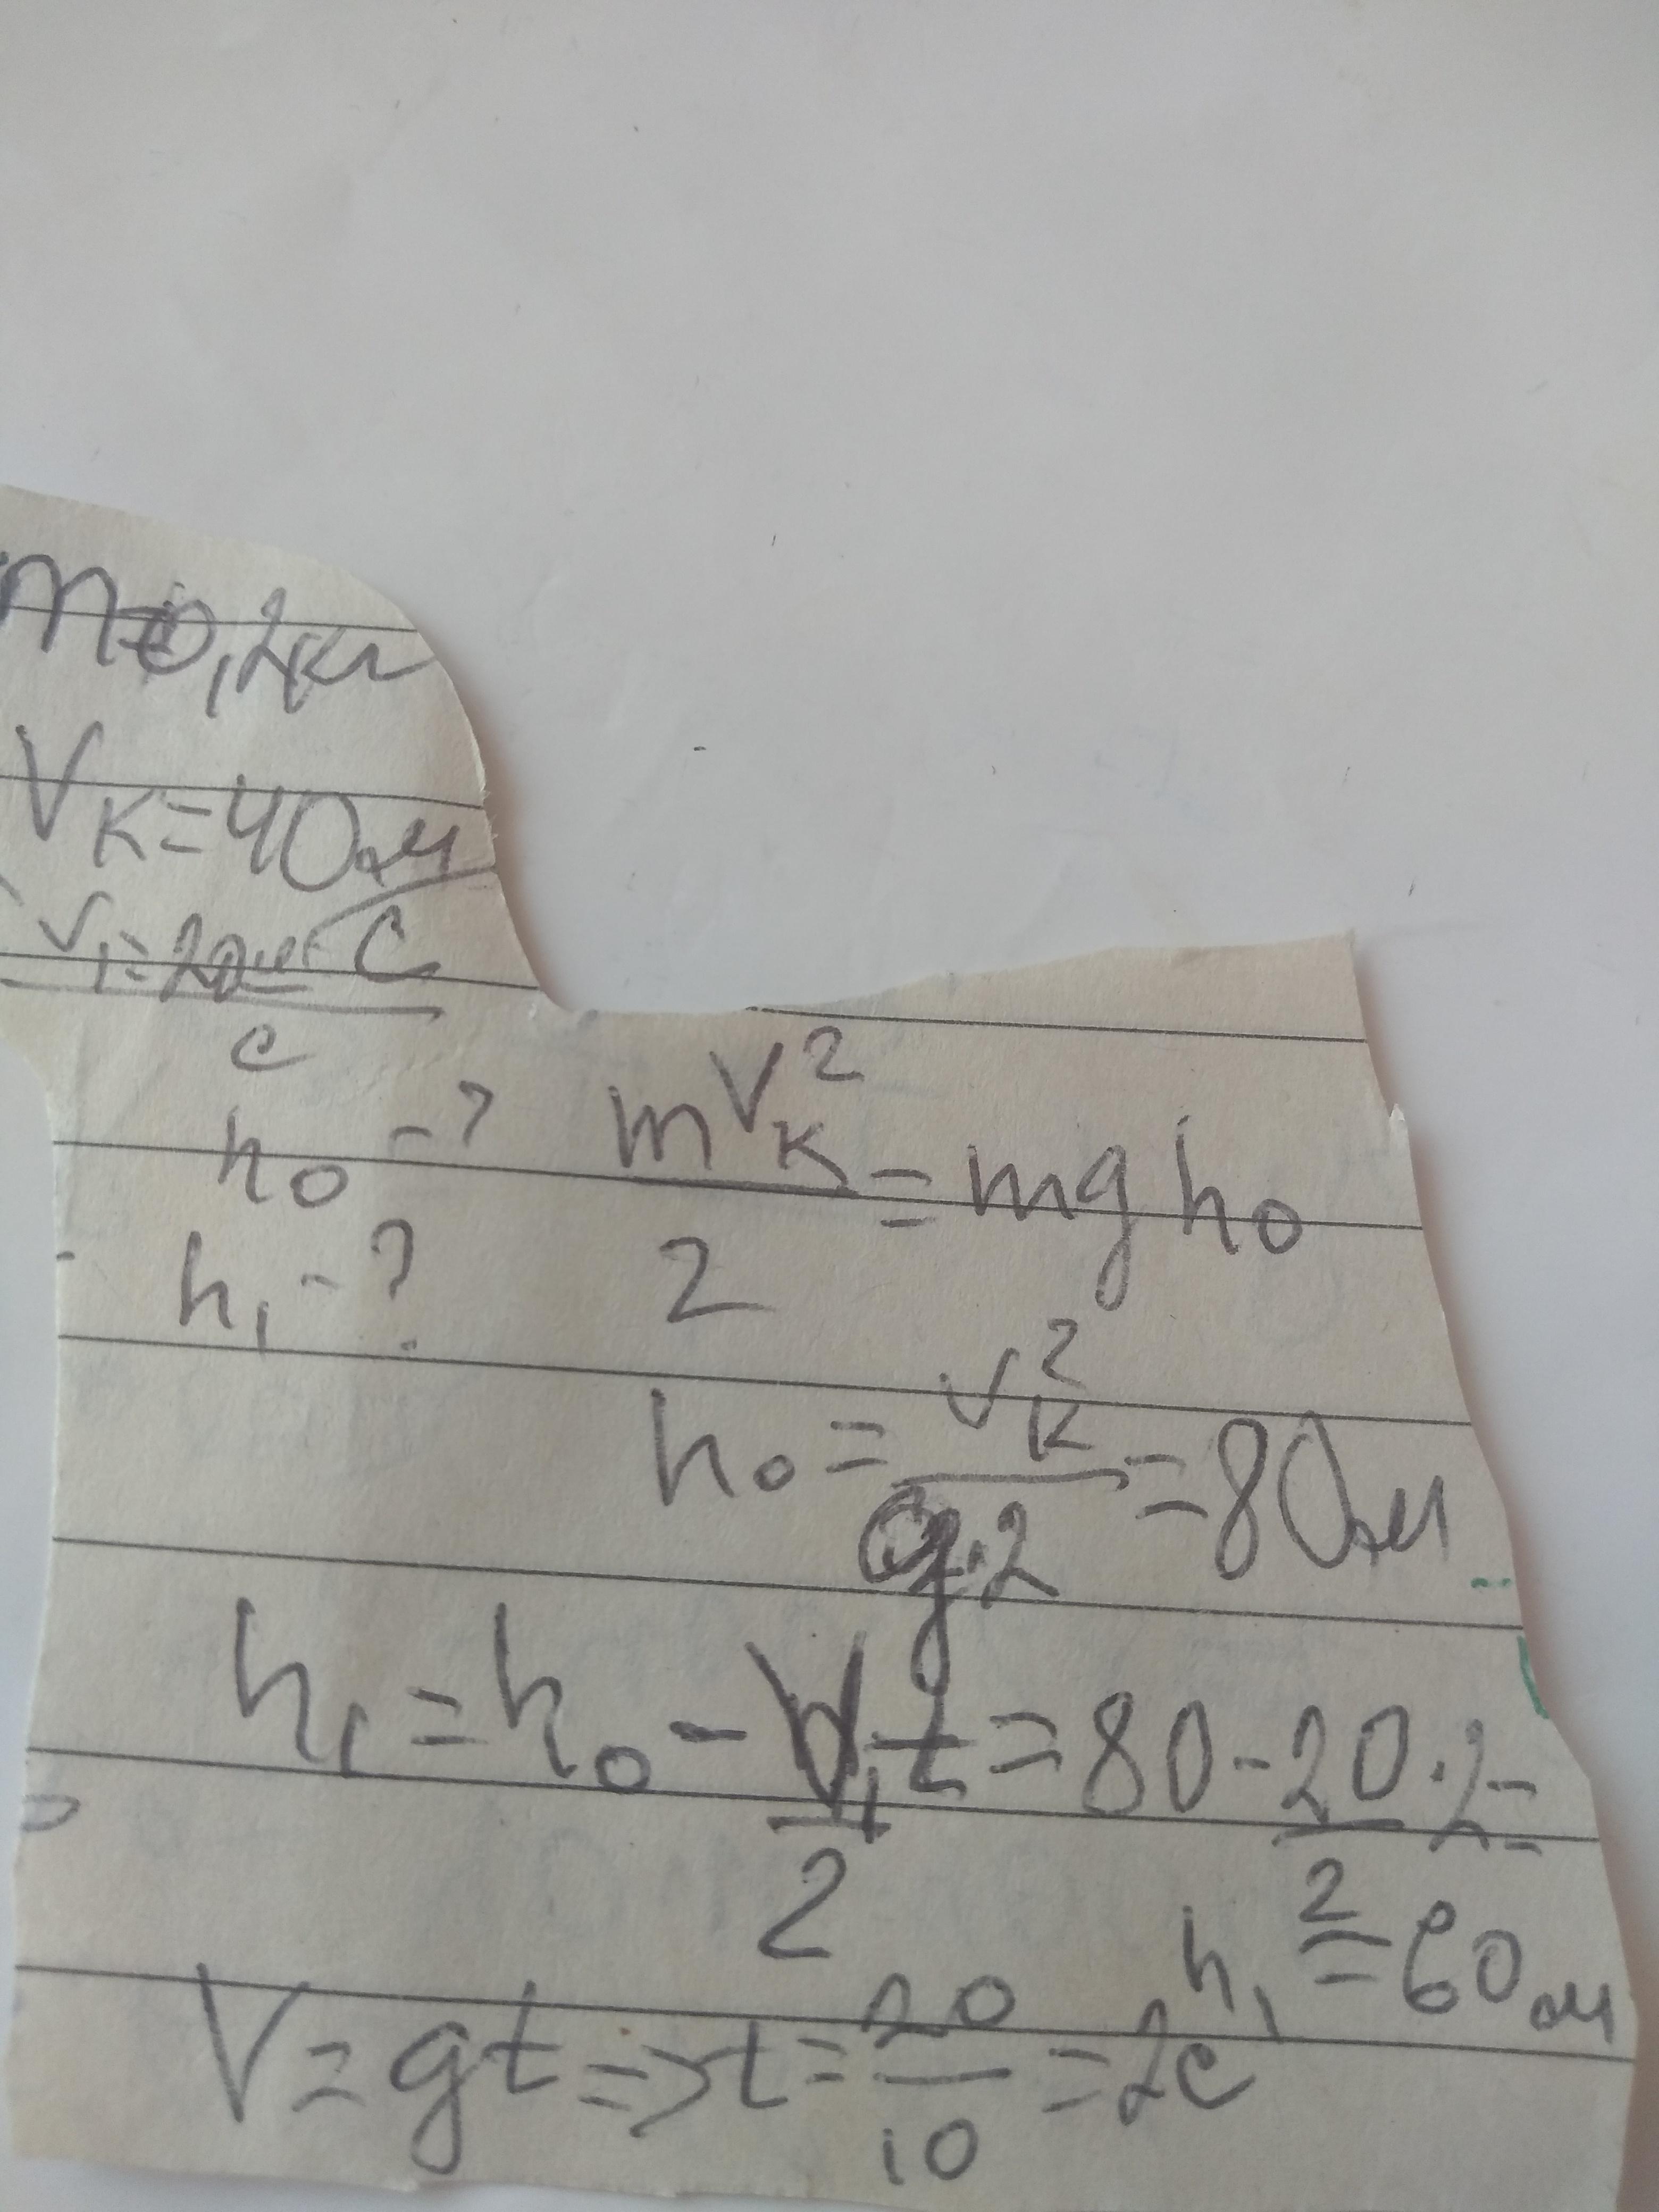 m=0,2кг
Vк=40м/с
V₁=20м/с
h₀ -?
mVк²/2 = mgh₀
h₁ - ?
h₀ = Vк²/g·2 = 80м
h₁ = h₀ - V₁t/2 = 80 - 20/2 · 2 =
h₁ = 60м
V = gt => t = 20/10 = 2с